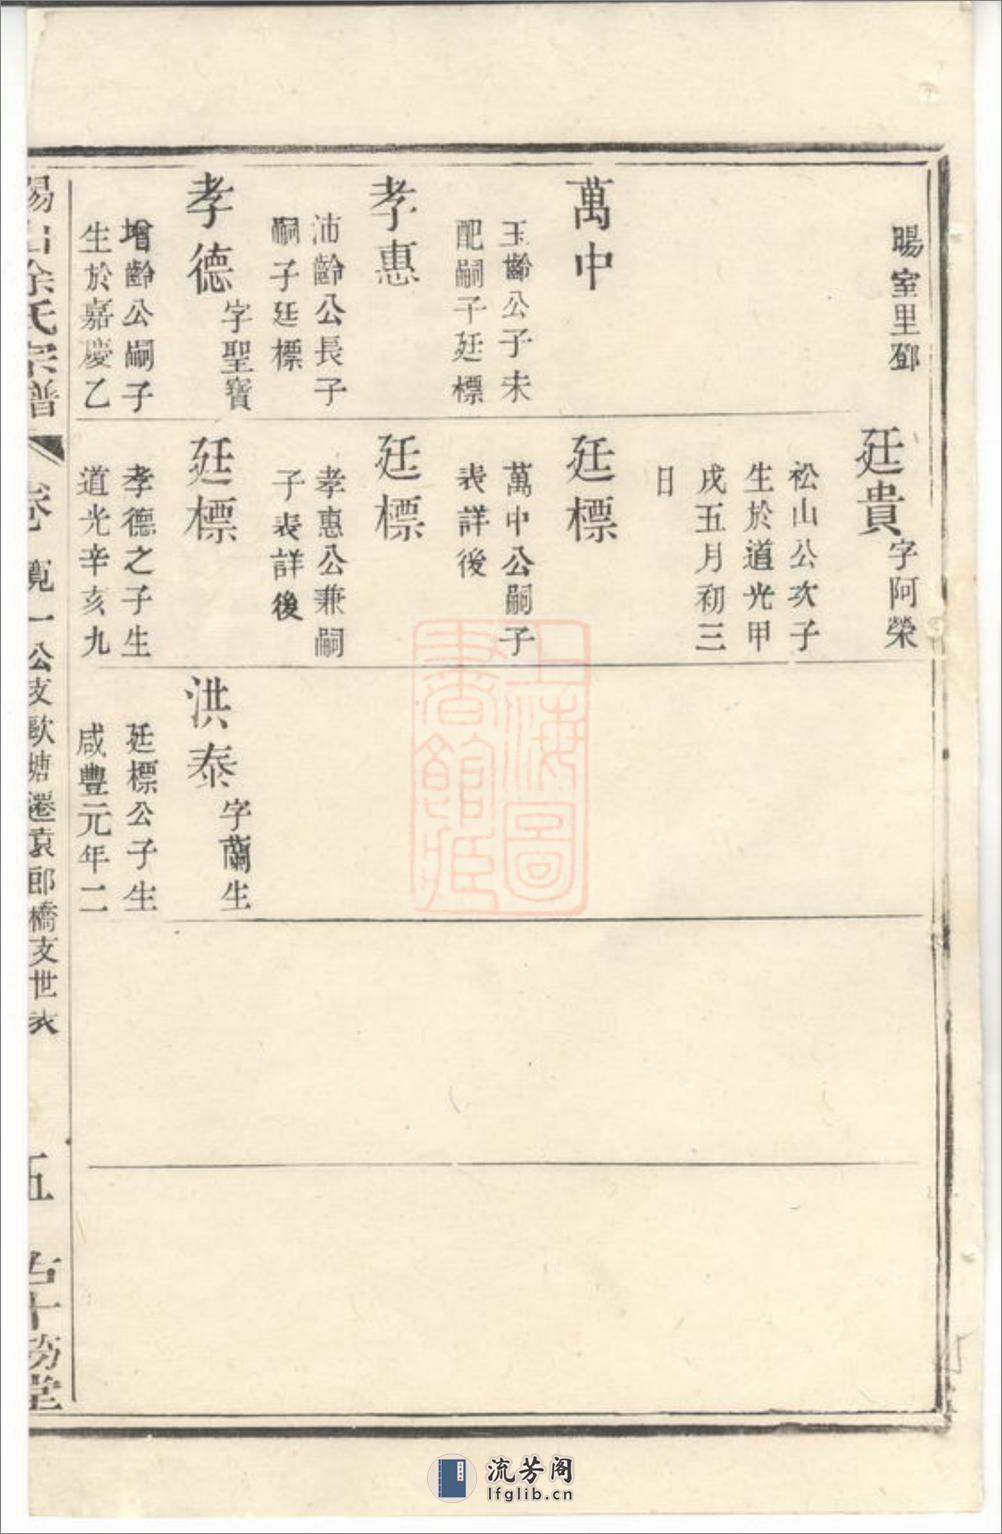 暘室里鄧
萬中
玉齡公子未
配嗣子廷標
孝惠
沛齡公長子
嗣子廷標
孝德字聖寶
增齡公嗣子
生於嘉慶乙
廷貴字阿榮
松山公次子
生於道光甲
戌五月初三
日
廷標
萬中公嗣子
表詳後
廷標
孝惠公兼嗣
子表詳後
廷標
孝德之子生
道光辛亥九
洪泰字蘭生
廷標公子生
咸豐元年二
錫山徐氏宗譜
卷
寬一公支歐塘遷袁郎橋支世表
五
上海圖
書館藏
流芳阁
lfglib.cn